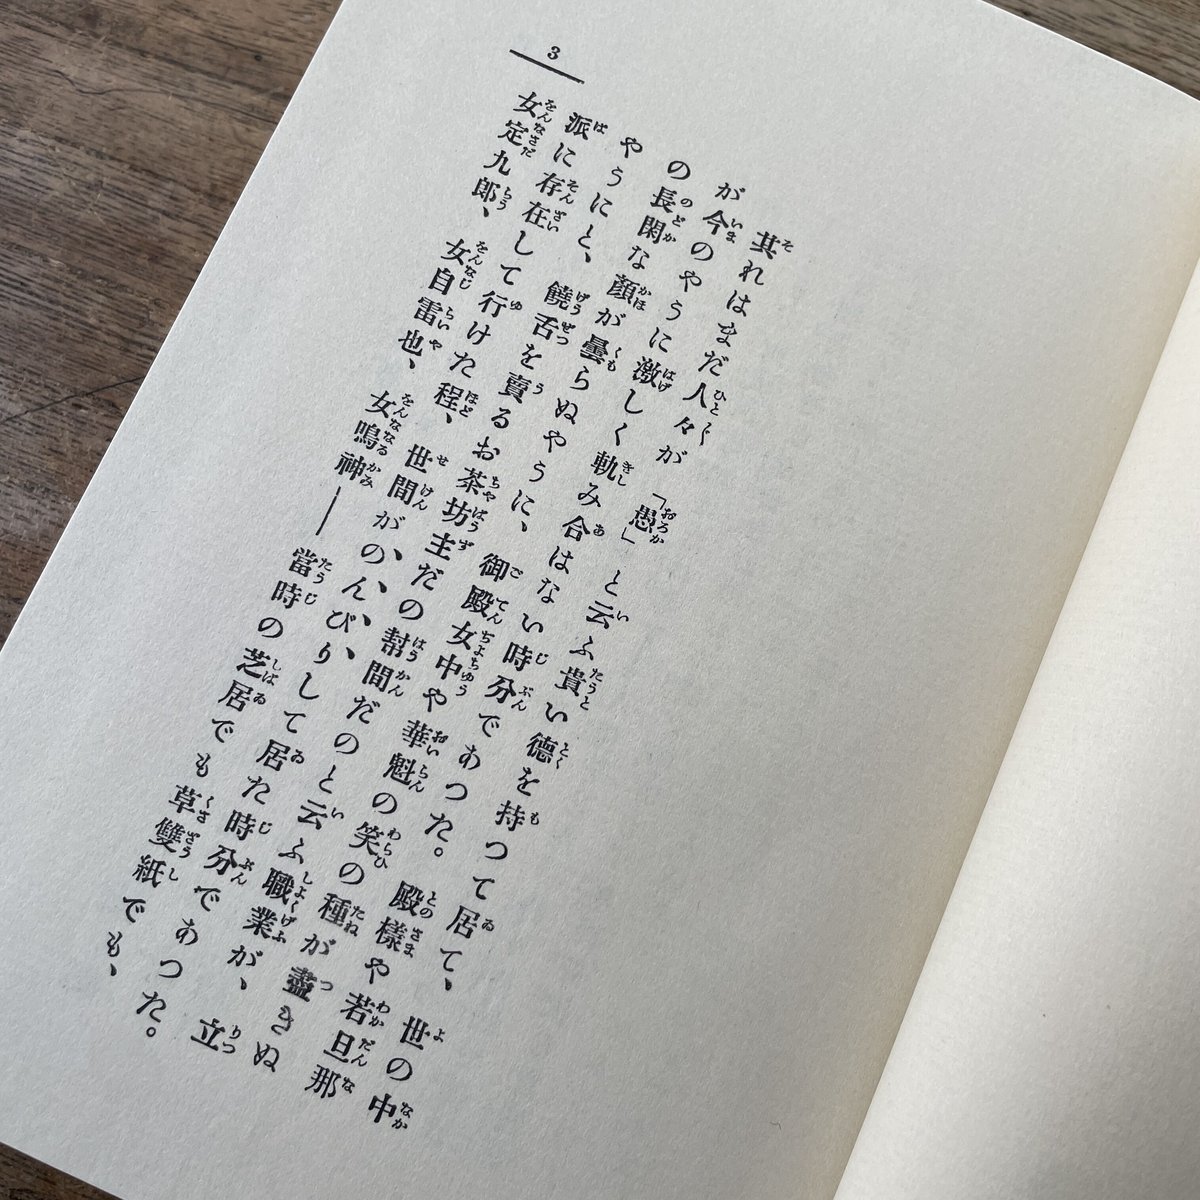 3
其れはまだ人々が「愚」と云ふ貴い德を持つて居て、世の中
が今のやうに激しく軋み合はない時分であつた。殿樣や若旦那
の長閑な顏が曇らぬやうに、御殿女中や華魁の笑の種が盡きぬ
やうにと、饒舌を賣るお茶坊主だの幇間だのと云ふ職業が、立
派に存在して行けた程、世間がのんびりして居た時分であつた。
女定九郎、女自雷也、女鳴神――當時の芝居でも草雙紙でも、